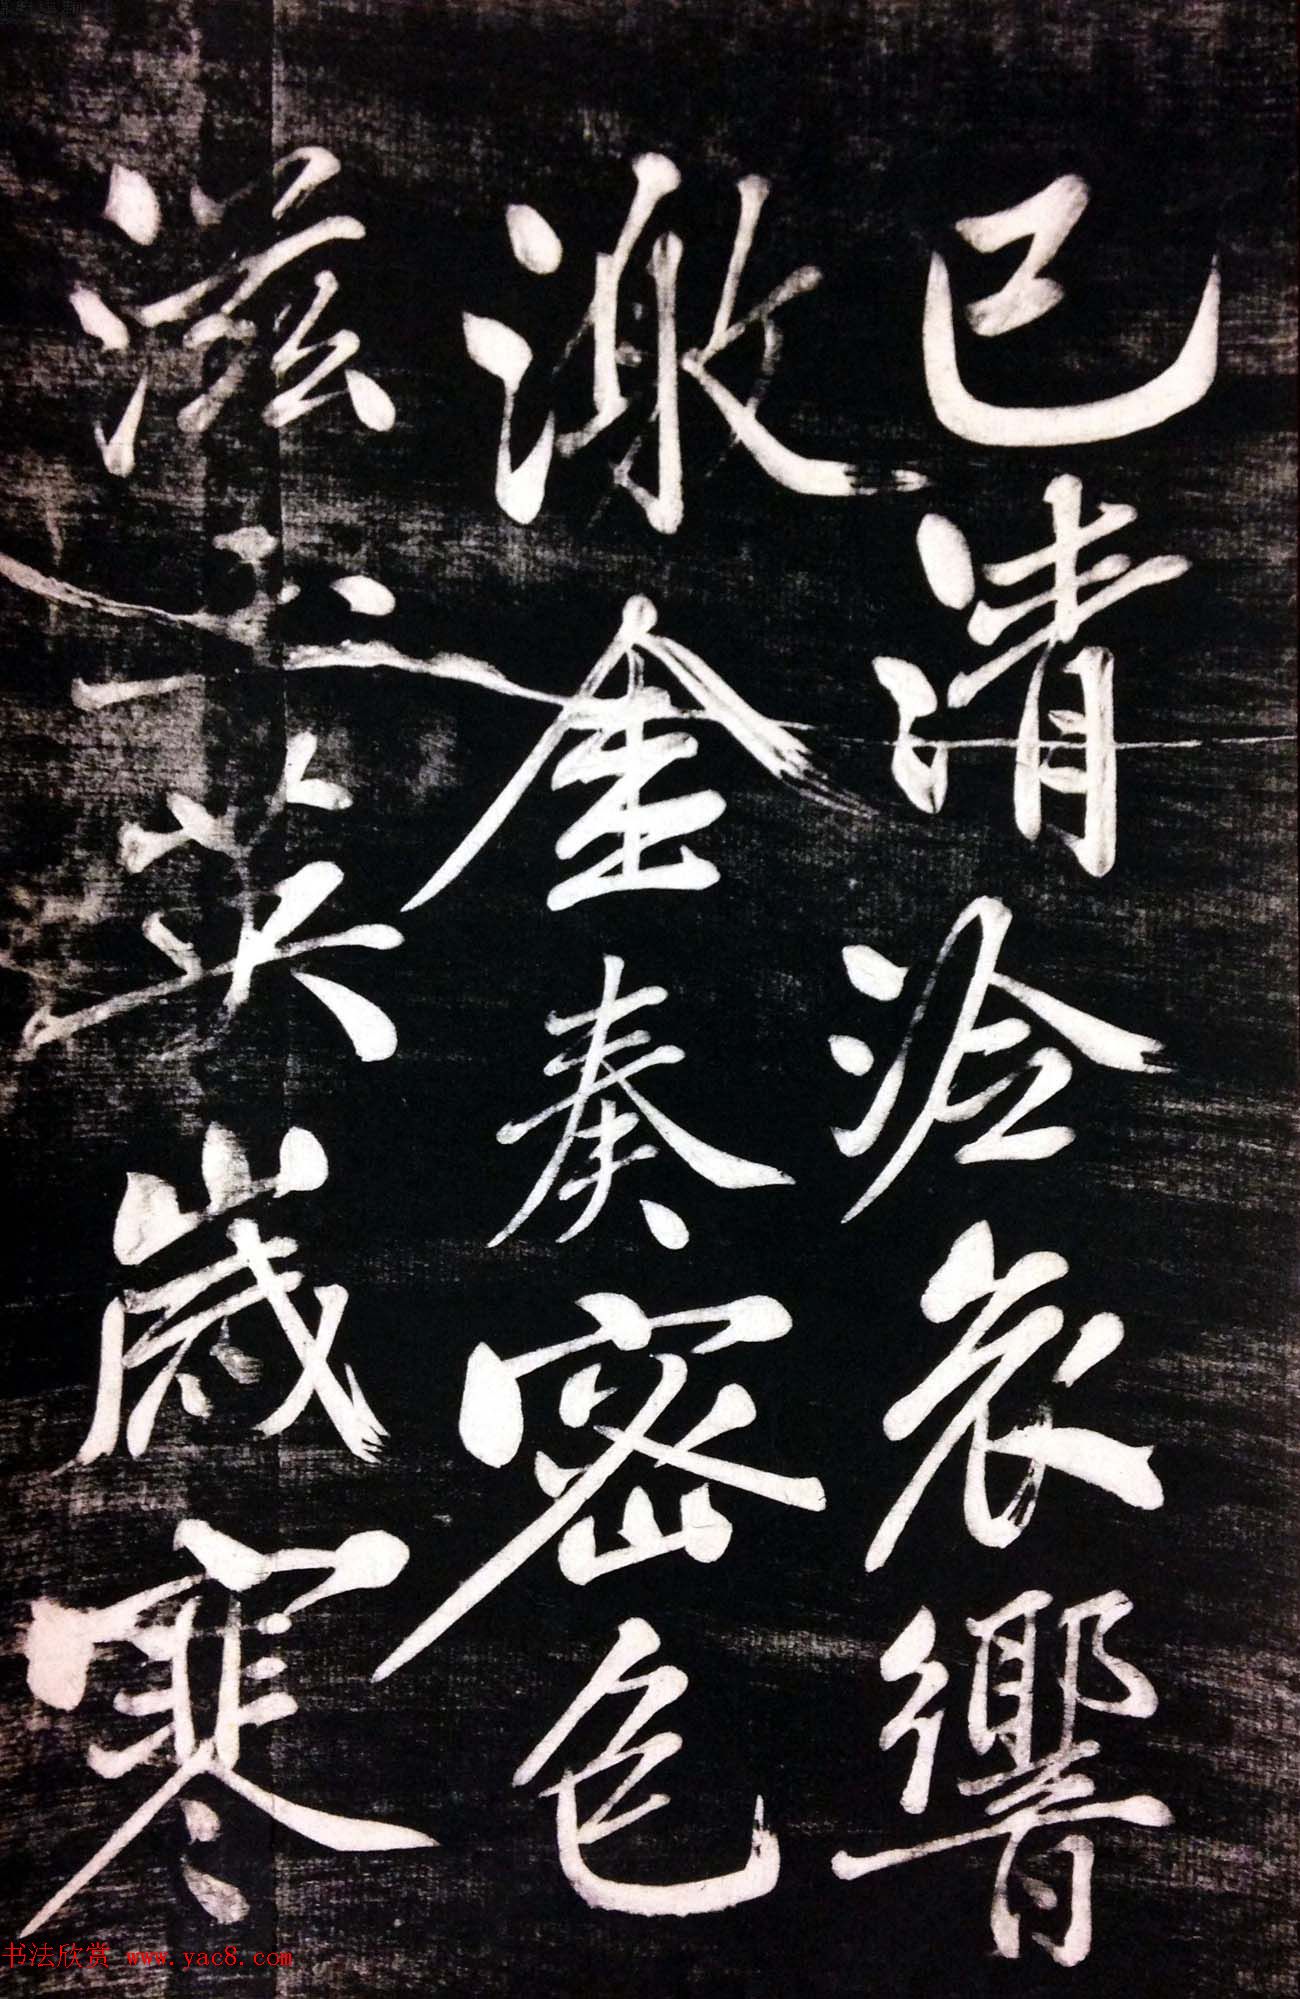 已清泠哀響
激金奏密色
滋玉英歲寒
书法欣赏 www.yac8.com